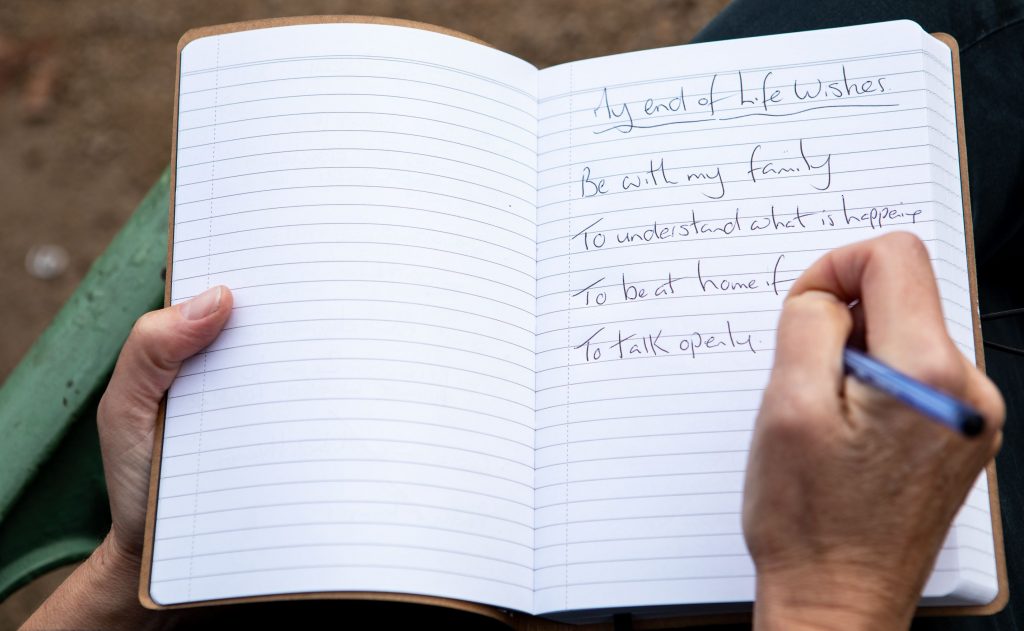 My end of Life Wishes
Be with my family
To understand what is happening
To be at home if
To talk openly.